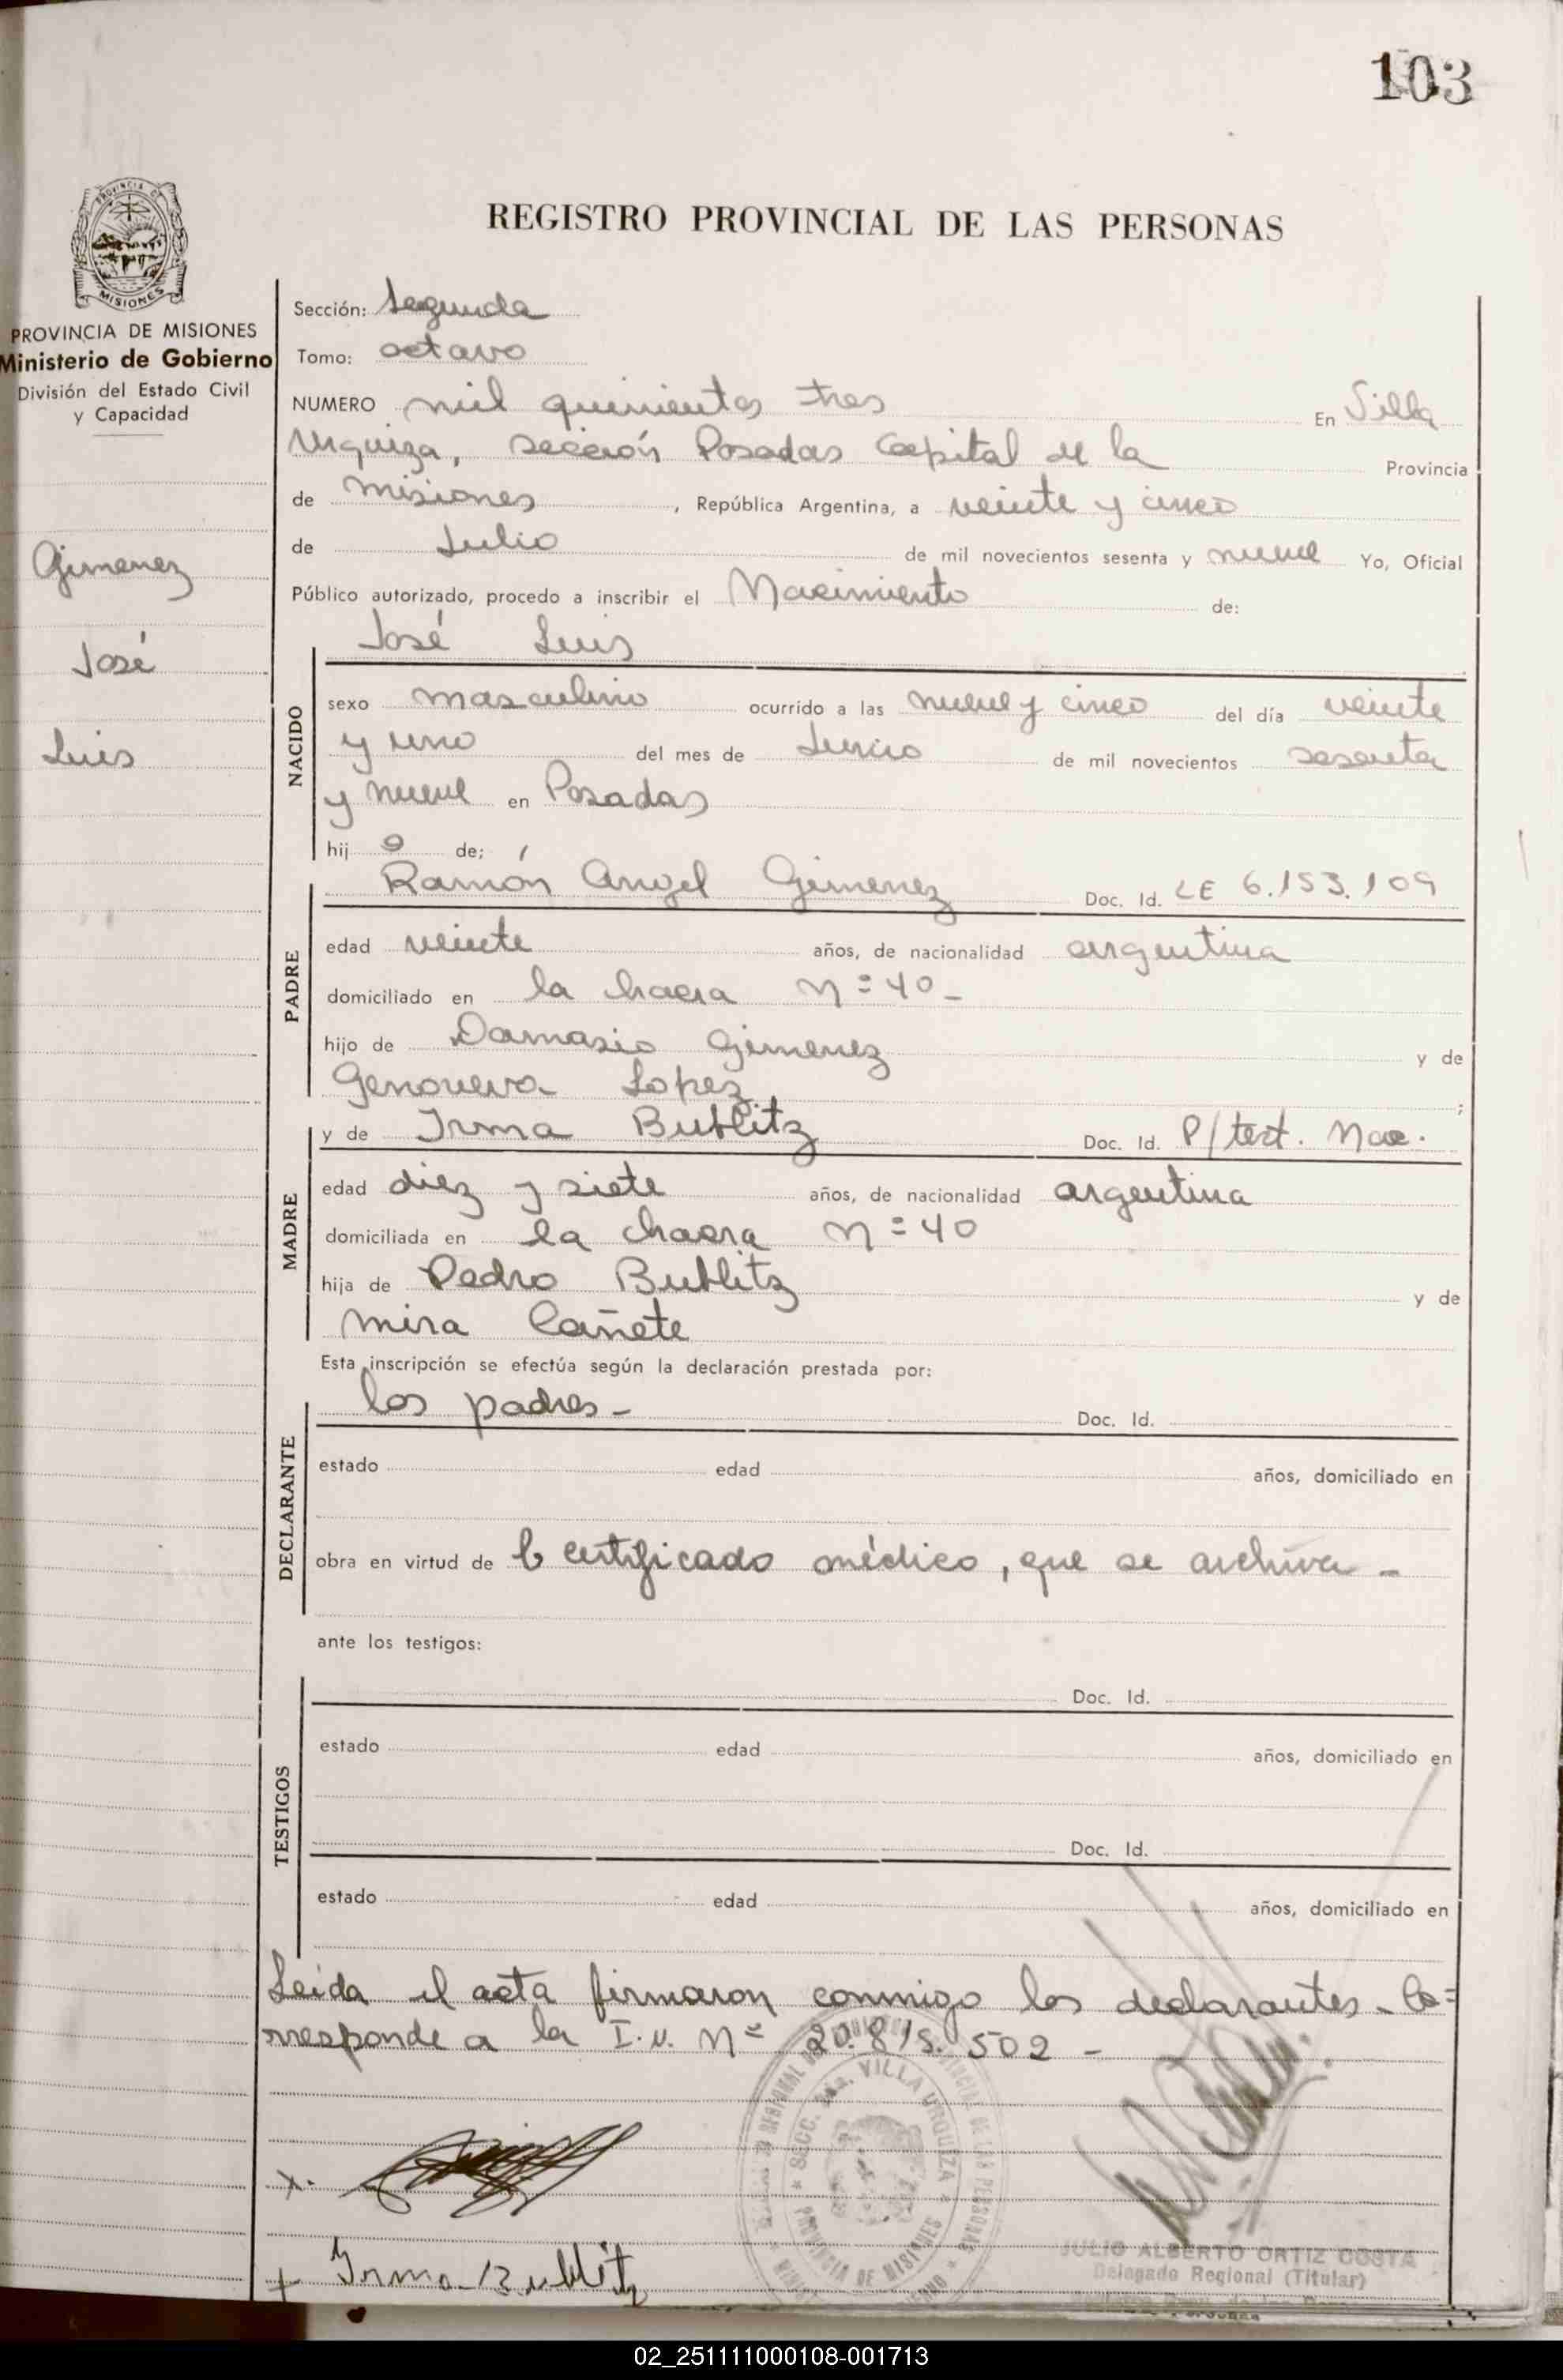 103
REGISTRO PROVINCIAL DE LAS PERSONAS
MISIONES
PROVINCIA DE MISIONES
Ministerio de Gobierno
División del Estado Civil
y Capacidad
Gimenez
José
Luis
Sección: Segunda
Tomo: octavo
NUMERO mil quinientos tres En Villa
Urquiza, sección Posadas Capital de la Provincia
de Misiones, República Argentina, a veinte y cinco
de Julio de mil novecientos sesenta y nueve Yo, Oficial
Público autorizado, procedo a inscribir el Nacimiento de:
José Luis
NACIDO
sexo masculino ocurrido a las nueve y cinco del día veinte
y uno del mes de Junio de mil novecientos sesenta
y nueve en Posadas
hijo de;
PADRE
Ramón Angel Gimenez Doc. Id. LE 6.153.109
edad veinte años, de nacionalidad argentina
domiciliado en la chacra Nº 40-
hijo de Damasio Gimenez y de
Genoveva Lopez ;
MADRE
y de Irma Bublitz Doc. Id. P/test. Nac.
edad diez y siete años, de nacionalidad argentina
domiciliada en la chacra Nº 40
hija de Pedro Bublitz y de
Mira Cañete
Esta inscripción se efectúa según la declaración prestada por:
DECLARANTE
los padres- Doc. Id.
estado edad años, domiciliado en
obra en virtud de certificado médico, que se archiva-
ante los testigos:
TESTIGOS
Doc. Id.
estado edad años, domiciliado en
Doc. Id.
estado edad años, domiciliado en
Leida el acta firmaron conmigo los declarantes- Co=
rresponde a la Nº 20.818.502-
x.
+ Irma Bublitz
SECC. 2da. VILLA URQUIZA
PROVINCIA DE MISIONES
JULIO ALBERTO ORTIZ COSTA
Delegado Regional (Titular)
02_251111000108-001713